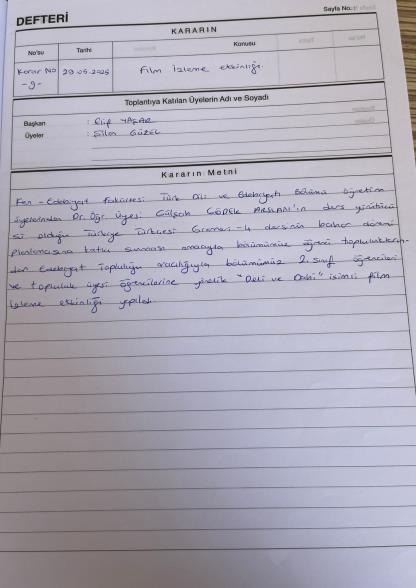 DEFTERİ
Sayfa No.:
KARARIN
No'su
Tarihi
Konusu
Karar No
-9-
29.05.2025
Film İzleme etkinliği.
Toplantıya Katılan Üyelerin Adı ve Soyadı
Başkan : Elif YAŞAR
Üyeler : Silan GÜZEL
Kararın Metni
Fen-Edebiyat Fakültesi Türk Dili ve Edebiyatı Bölümü öğretim
üyelerinden Dr. Öğr. Üyesi Gülşah GÖDEK ARSLAN'ın ders yürütücü
sü olduğu Türkiye Türkçesi Grameri-4 dersinin bahar dönemi
planlamasına katkı sunması amacıyla bölümümüz öğrenci toplulukların-
dan Edebiyat Topluluğu aracılığıyla bölümümüz 2. sınıf öğrencileri
ve topluluk üyesi öğrencilerine yönelik "Deli ve Dahi" isimli film
izleme etkinliği yapıldı.